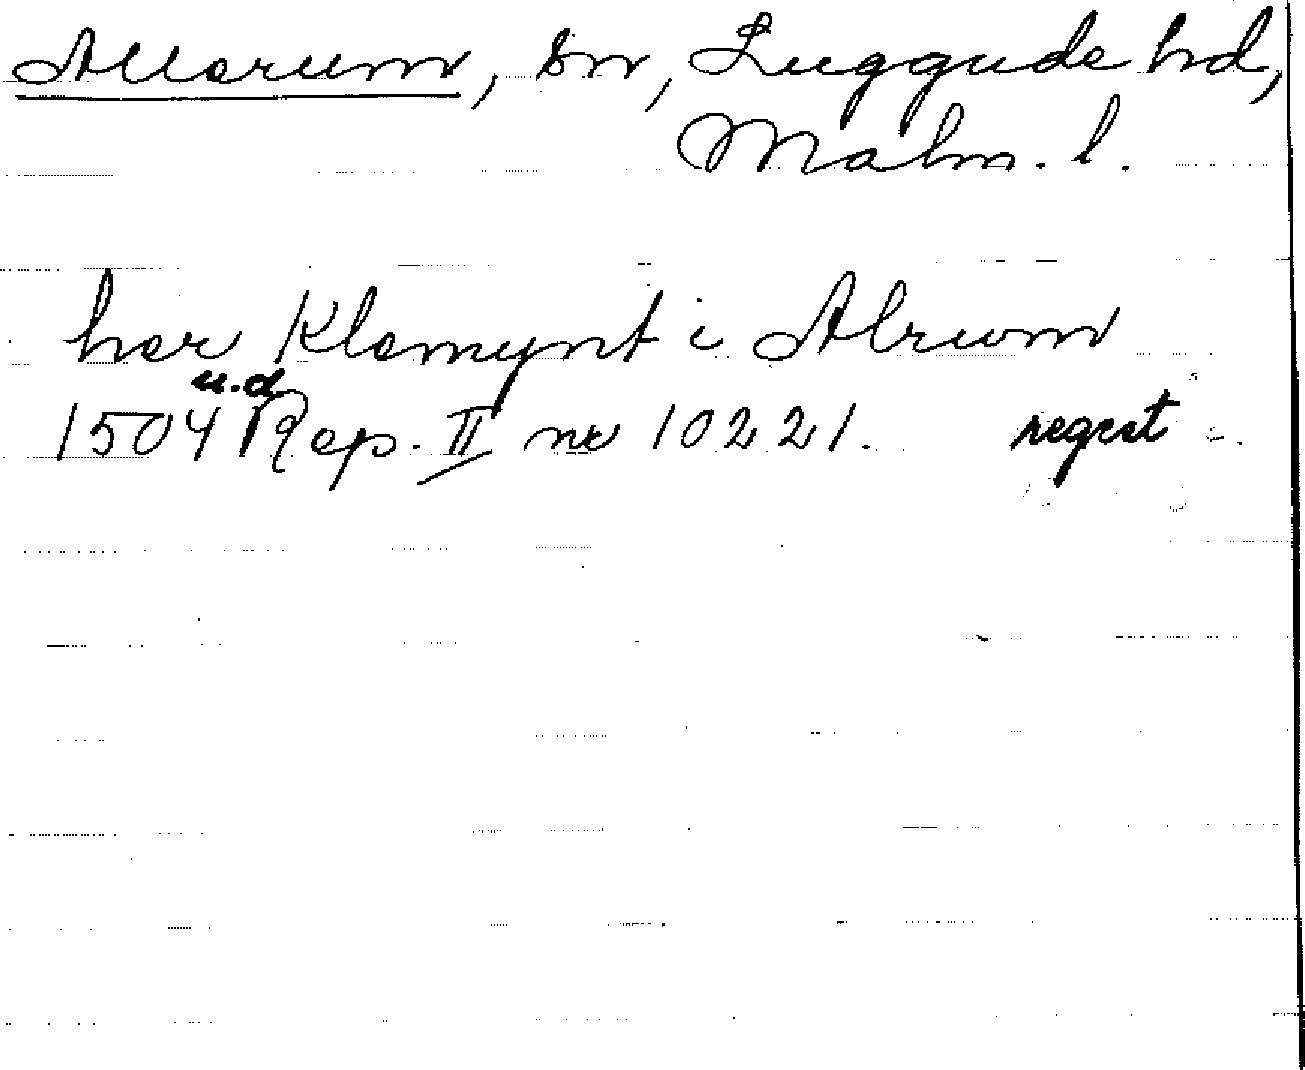 Allerum, sn, Luggude hd,
Malm. l.
her Klemynt i Alrwm
u.d
1504 Rep. II nr 10221. regest